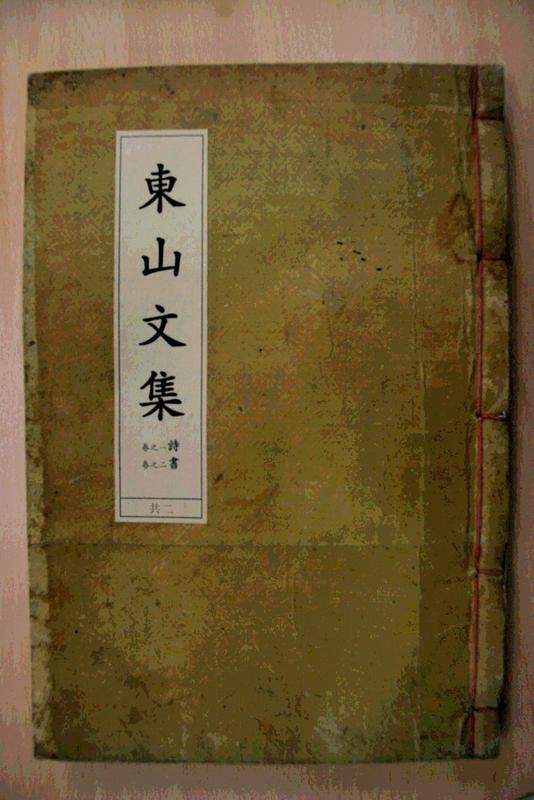 東山文集
卷之一 詩
卷之二 書
共二